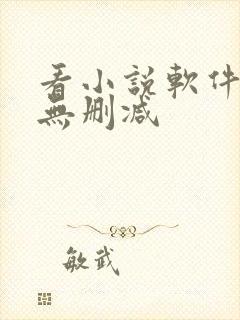 看小說軟件
無刪減
敏武